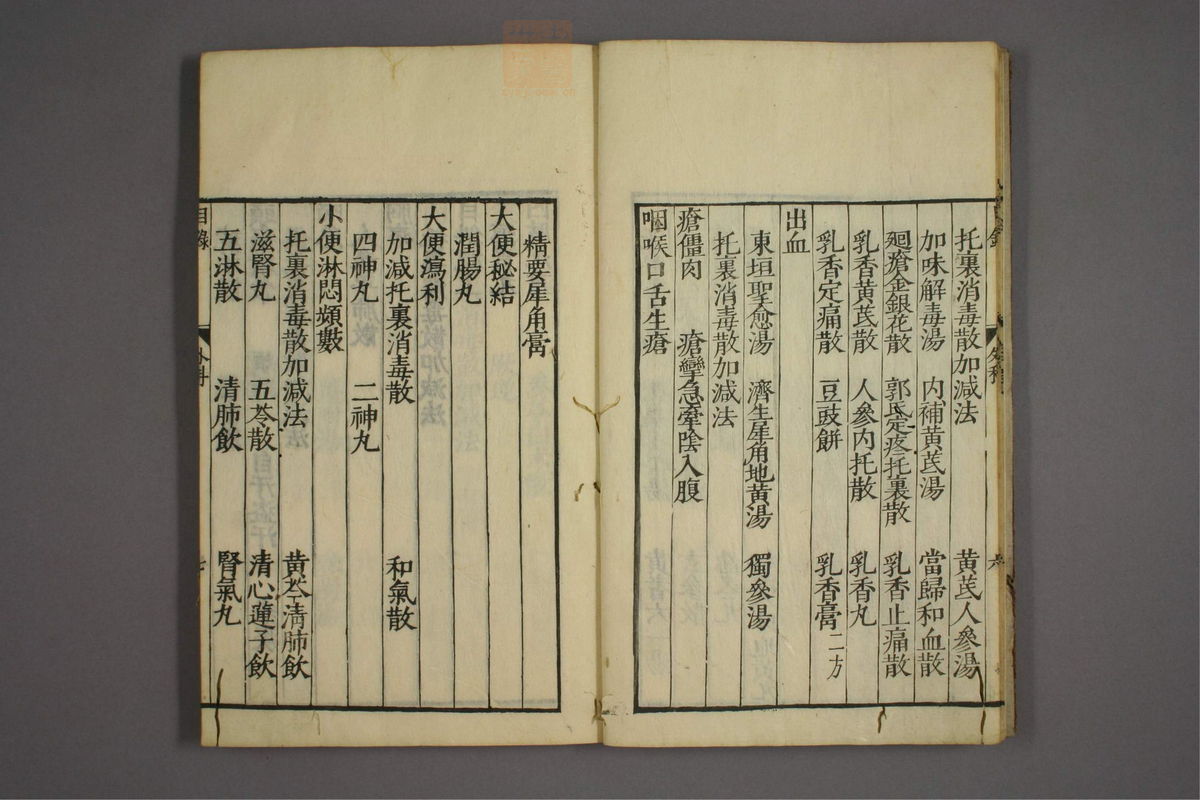 托裏消毒散加減法 黄芪人參湯
加味解毒湯 内補黄芪湯 當歸和血散
廻瘡金銀花散 郭氏定疼托裏散 乳香止痛散
乳香黄芪散 人參内托散 乳香丸
乳香定痛散 豆豉餅 乳香膏二方
出血
東垣聖愈湯 濟生犀角地黄湯 獨參湯
托裏消毒散加減法
瘡僵肉 瘡攣急牽陰入腹
咽喉口舌生瘡
精要犀角膏
大便秘結
潤腸丸
大便瀉利
加減托裏消毒散 和氣散
四神丸 二神丸
小便淋悶頻數
托裏消毒散加減法 黄芩清肺飲
滋腎丸 五苓散 清心蓮子飲
五淋散 清肺飲 腎氣丸
目錄 外科 七